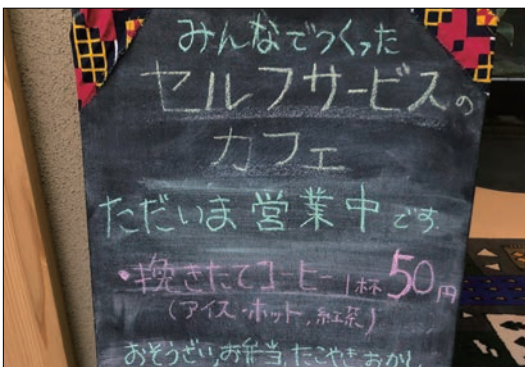 みんなでつくった
セルフサービスの
カフェ
ただいま営業中です。
・挽きたてコーヒー1杯50円
(アイス・ホット,紅茶)
おそうざい,お弁当,たこやきおかし